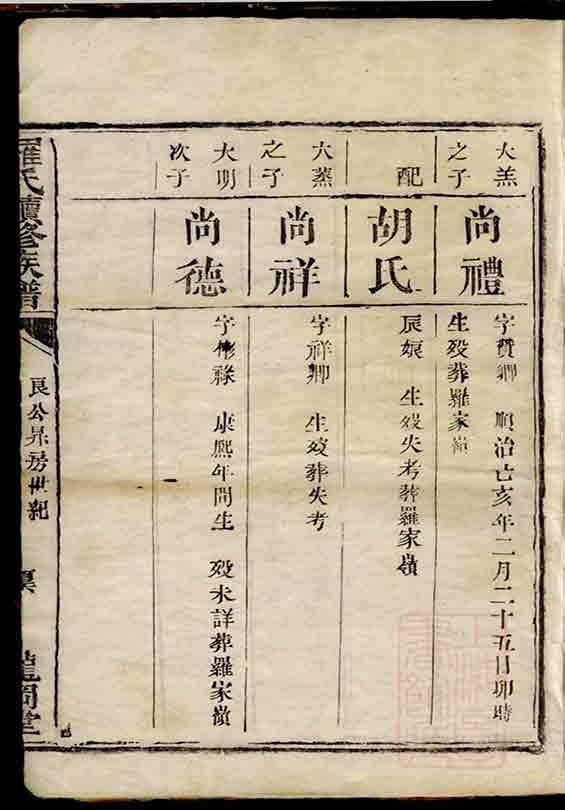 大羔
之子
尚禮
字贊卿 順治己亥年二月二十五日卯時
生歿葬羅家嶺
配
胡氏
辰娘 生歿失考葬羅家嶺
大蒸
之子
尚祥
字祥卿 生歿葬失考
大明
次子
尚德
字彬祿 康熙年間生 歿未詳葬羅家嶺
羅氏續修族譜
良公昇房世紀
龍岡堂